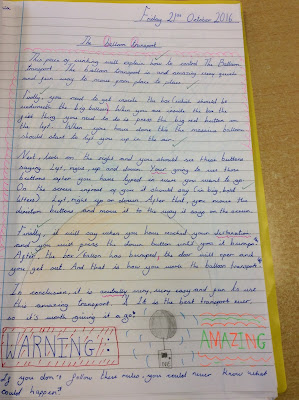 Friday 21st October 2016
The Balloon Transport
This piece of writing will explain how to control The Balloon
transport. The balloon transport is an amazing, very quick
and fun way to move from place to place.
Firstly, you need to get inside the box which should be
underneath the big balloon. Once you are inside the box the
first thing you need to do is press the big red button on
the left. When you have done this the massive balloon
should start to lift you up in the air.
Next, look on the right and you should see three buttons
saying left, right, up and down. Your going to use these
buttons after you have typed in where you want to go.
On the screen infront of you it should say (in big, bold
letters) Left, right, up or down. After that, you move the
direction buttons and move it to the way it says on the screen.
Finally, it will say when you have reached your destination
and you will press the down button until you it bumps.
After the box/balloon has bumped, the door will open and
you get out. And that is how you work the balloon transport.
In conclusion, it is really very, very easy and fun to use
this amazing transport. It is the best transport ever
so it's worth giving it a go!
WARNING!:
AMAZING
If you don't follow these rules, you could never know what
could happen?